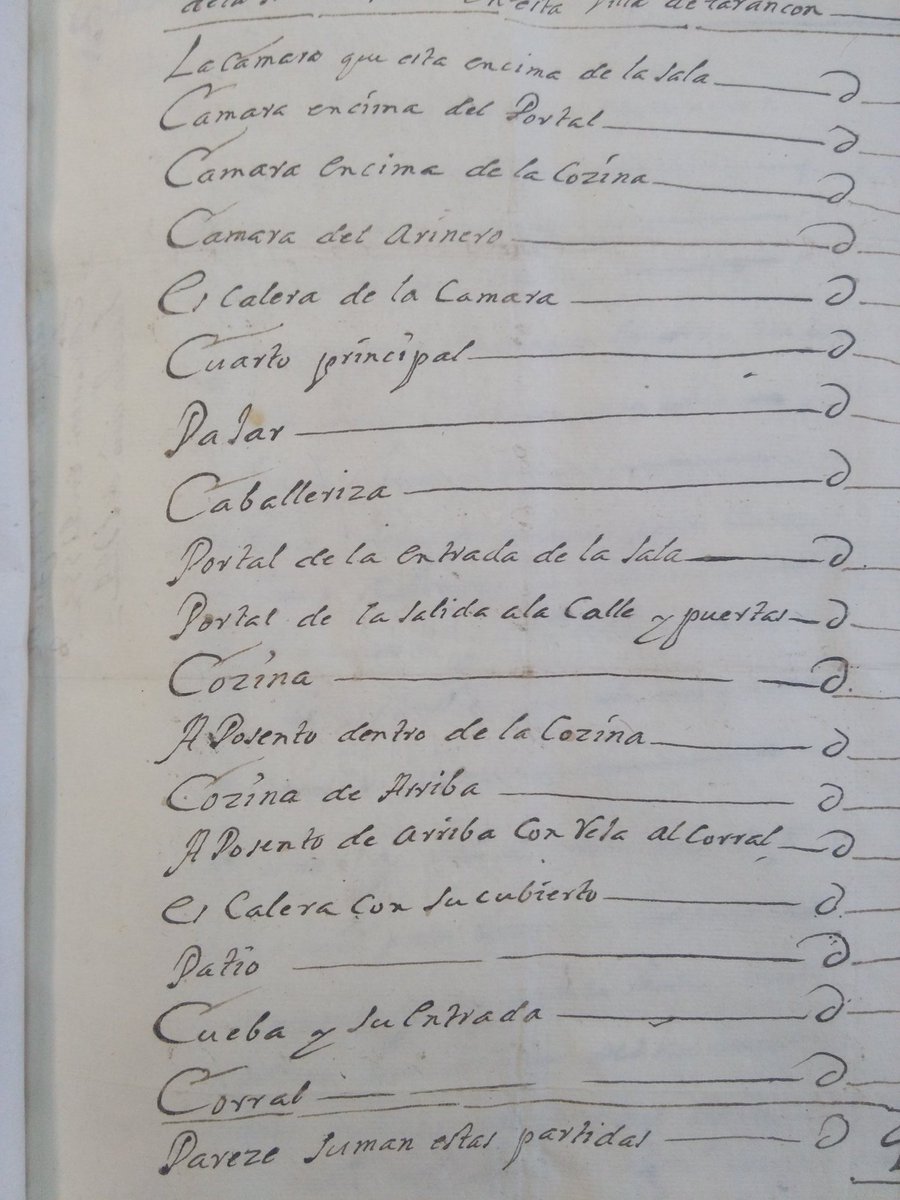 en esta Villa de tarancon
La Camara que esta encima de la sala
Camara encima del Portal
Camara encima de la Cozina
Camara del Arinero
Es Calera de la Camara
Cuarto principal
PaJar
Caballeriza
Portal de la entrada de la sala
Portal de la salida ala Calle y puertas
Cozina
A Posento dentro de la Cozina
Cozina de Arriba
A Posento de arriba Con al Corral
es Calera con su cubierto
Patio
Cueba y su entrada
Corral
Pareze suman estas partidas